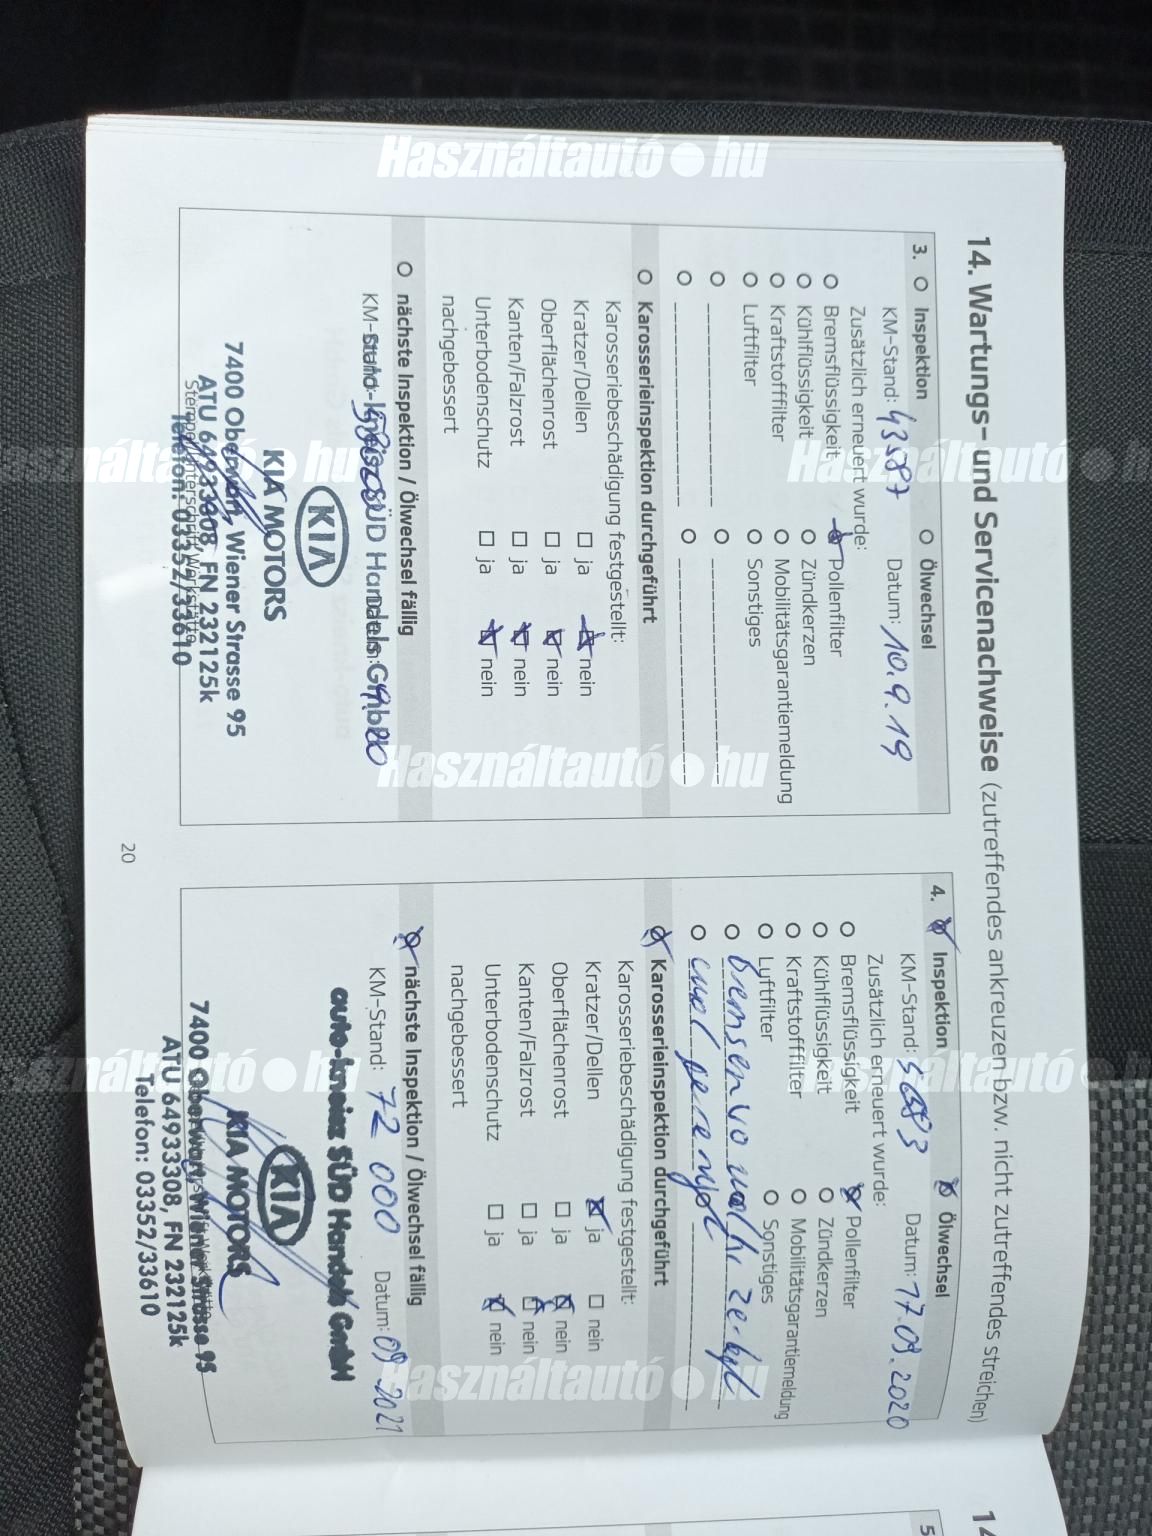 14. Wartungs- und Servicenachweise (zutreffendes ankreuzen bzw. nicht zutreffendes streichen)
3. Inspektion Ölwechsel
KM-Stand: 43587 Datum: 10.9.19
Zusätzlich erneuert wurde:
Bremsflüssigkeit Pollenfilter
Kühlflüssigkeit Zündkerzen
Kraftstofffilter Mobilitätsgarantiemeldung
Luftfilter Sonstiges
Karosserieinspektion durchgeführt
Karosseriebeschädigung festgestellt:
Kratzer/Dellen ja nein
Oberflächenrost ja nein
Kanten/Falzrost ja nein
Unterbodenschutz ja nein
nachgebessert
nächste Inspektion / Ölwechsel fällig
KM-Stand: Datum:
auto-kneisz SÜD Handels GmbH
KIA
KIA MOTORS
7400 Oberwart, Wiener Strasse 95
ATU 64933308, FN 232125k
Stempel/Unterschrift Werkstätte
Telefon: 03352/33610
20
4. Inspektion Ölwechsel
KM-Stand: Datum: 17.09.2020
Zusätzlich erneuert wurde:
Bremsflüssigkeit Pollenfilter
Kühlflüssigkeit Zündkerzen
Kraftstofffilter Mobilitätsgarantiemeldung
Luftfilter Sonstiges
Bremsen
Karosserieinspektion durchgeführt
Karosseriebeschädigung festgestellt:
Kratzer/Dellen ja nein
Oberflächenrost ja nein
Kanten/Falzrost ja nein
Unterbodenschutz ja nein
nachgebessert
nächste Inspektion / Ölwechsel fällig
KM-Stand: 72 000 Datum: 09.2021
auto-kneisz SÜD Handels GmbH
KIA
KIA MOTORS
7400 Oberwart, Wiener Strasse 95
ATU 64933308, FN 232125k
Telefon: 03352/33610
14
5
Használtautó.hu
Használtautó.hu
Használtautó.hu
Használtautó.hu
Használtautó.hu
Használtautó.hu
Használtautó.hu